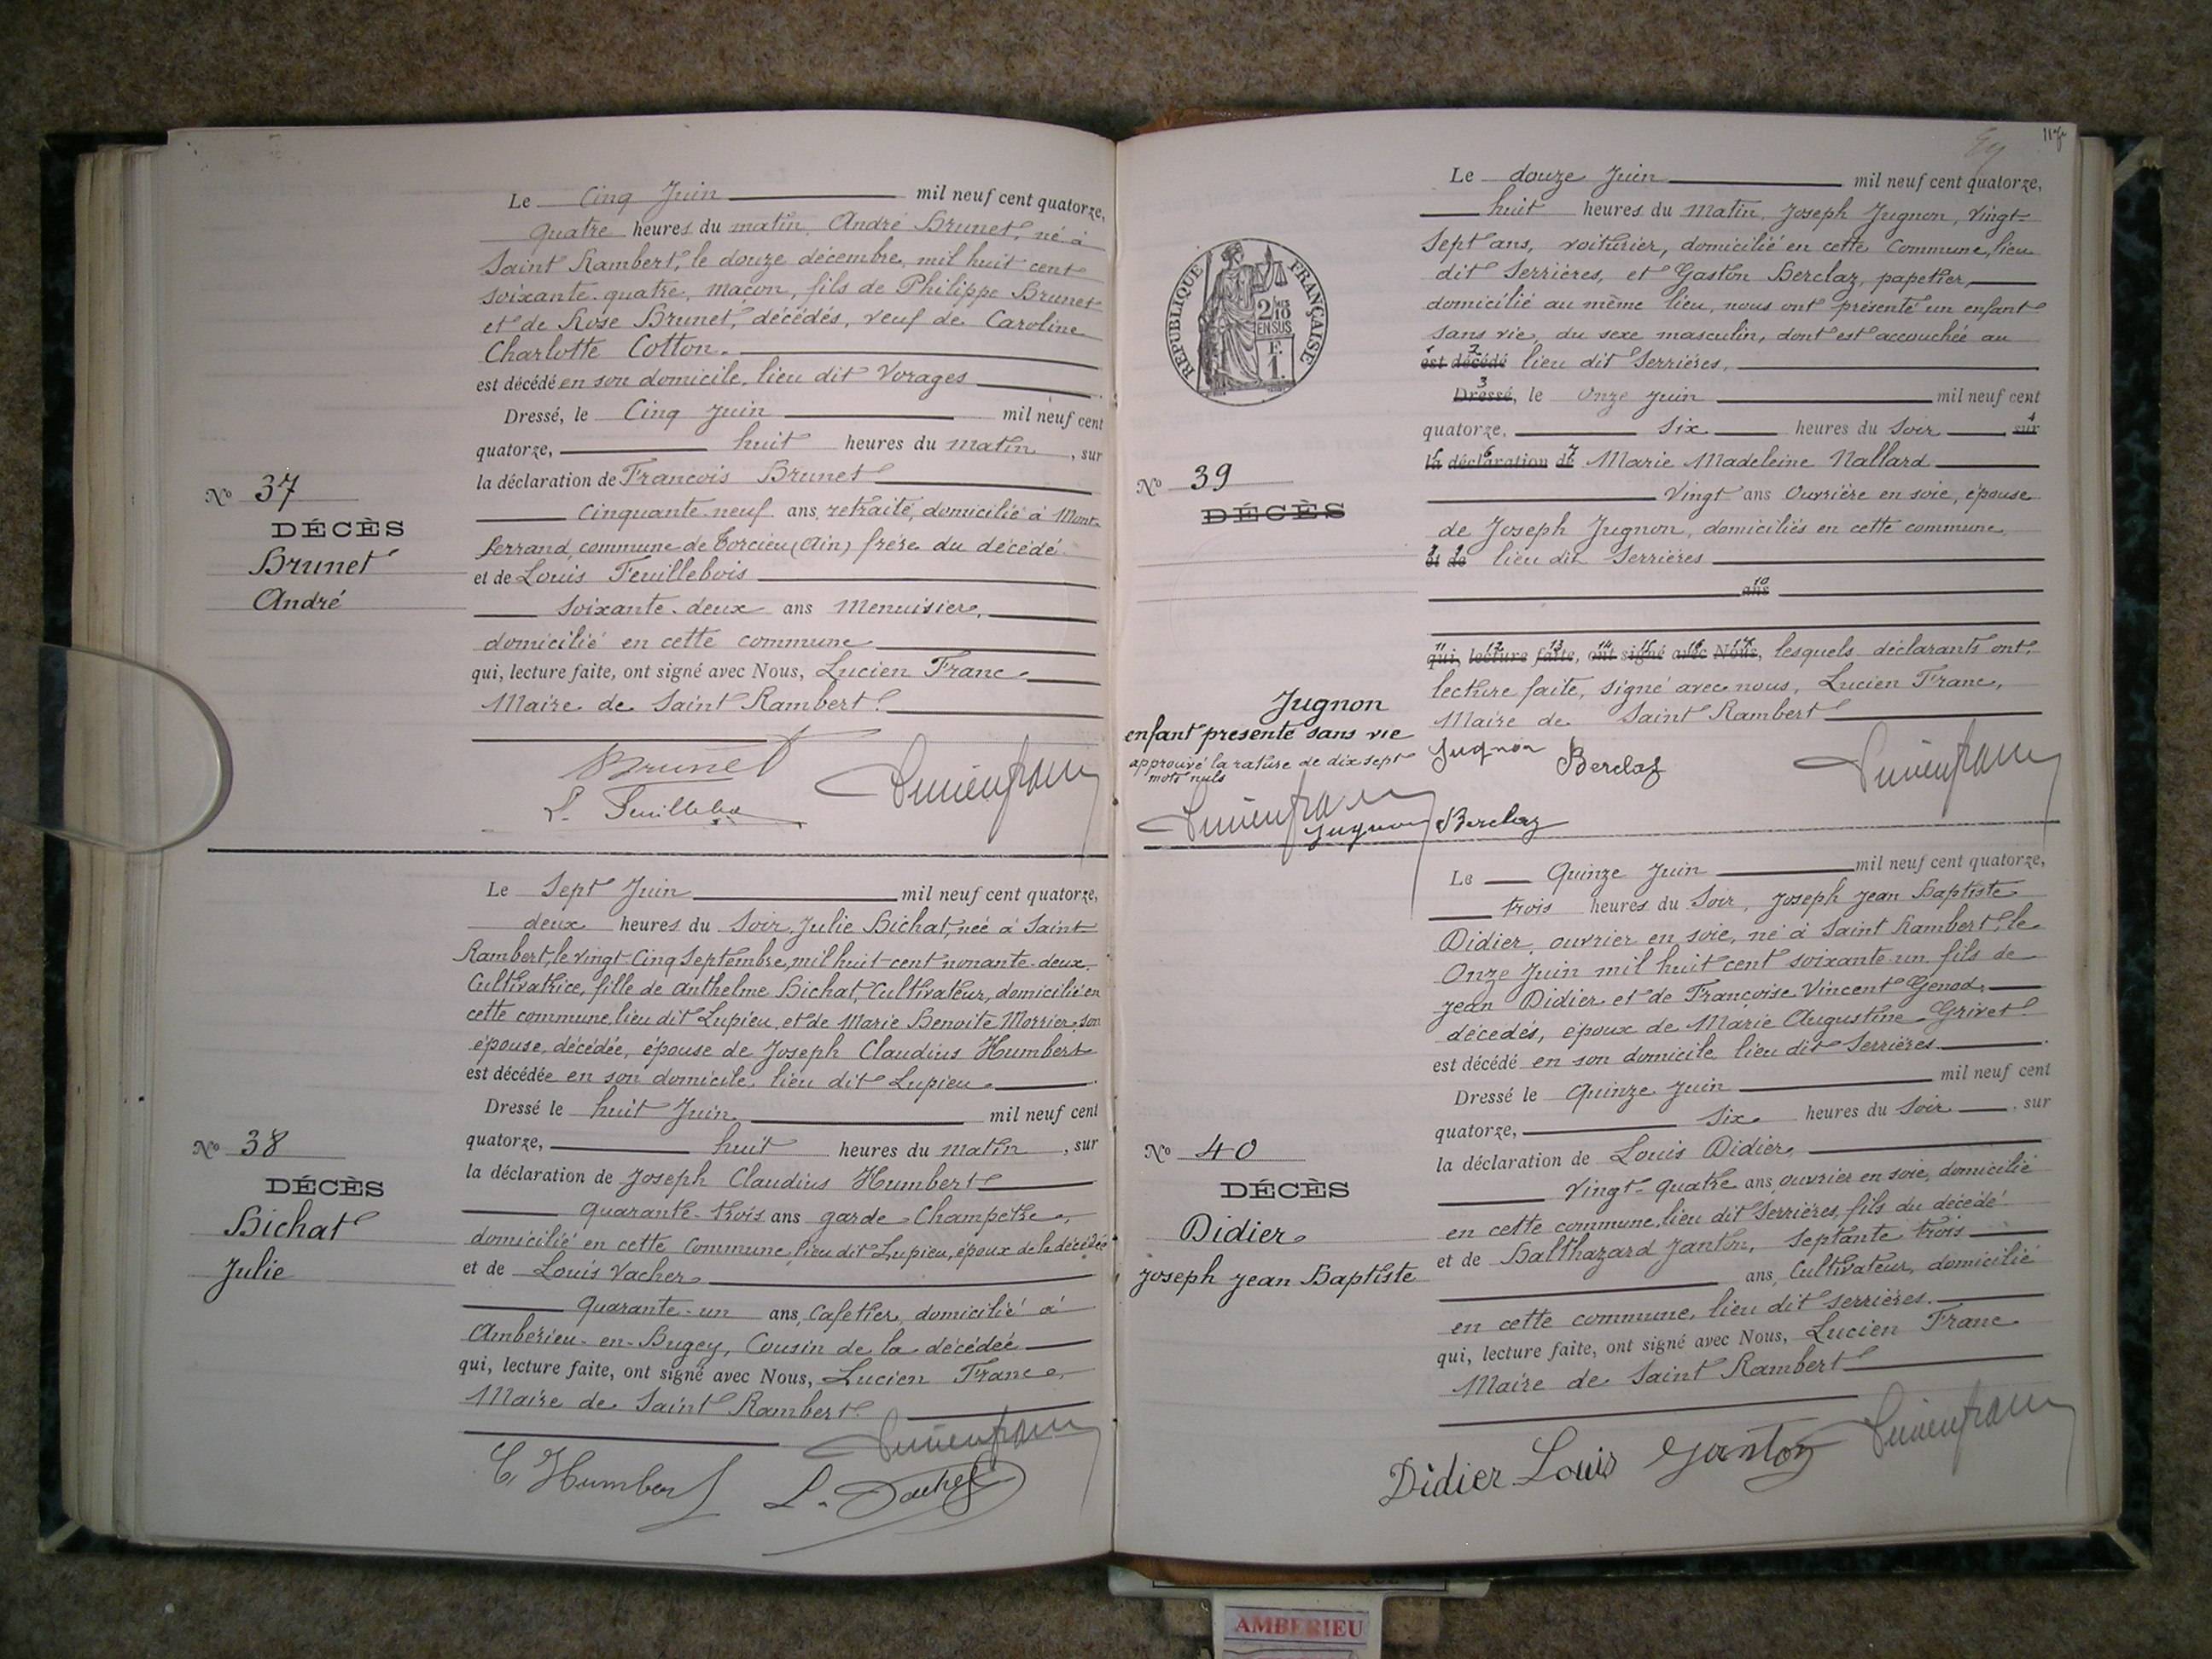 Le Cinq Juin mil neuf cent quatorze,
quatre heures du matin, André Brunet, né à
Saint Rambert, le douze décembre, mil huit cent
soixante-quatre, maçon, fils de Philippe Brunet
et de Rose Brunet, décédés, veuf de Caroline
Charlotte Cotton.
est décédé en son domicile, lieu dit Vorages
Dressé, le Cinq Juin mil neuf cent
quatorze, huit heures du matin, sur
la déclaration de François Brunet
N° 37
DÉCÈS
Brunet
André
cinquante-neuf ans, retraité, domicilié à Mont-
ferrand, commune de Torcieu (Ain) frère du décédé
et de Louis Feuillebois
soixante-deux ans Menuisier,
domicilié en cette commune
qui, lecture faite, ont signé avec Nous, Lucien Franc,
Maire de Saint Rambert.
Brunet
L. Feuillebois
Lucien franc
Le Sept Juin mil neuf cent quatorze,
deux heures du Soir, Julie Bichat, née à Saint
Rambert, le vingt-Cinq Septembre, mil huit-cent nonante-deux,
Cultivatrice, fille de Anthelme Bichat, Cultivateur, domicilié en
cette commune, lieu dit Lupieu, et de Marie Benoite Morrier, son
épouse, décédée, épouse de Joseph Claudius Humbert
est décédée en son domicile, lieu dit Lupieu
Dressé le huit Juin mil neuf cent
quatorze, huit heures du matin, sur
la déclaration de Joseph Claudius Humbert
N° 38
DÉCÈS
Bichat
Julie
quarante-trois ans garde-Champêtre,
domicilié en cette Commune, lieu dit Lupieu, époux de la décédée
et de Louis Vacher
quarante-un ans, Cafetier, domicilié à
Ambérieu-en-Bugey, Cousin de la décédée
qui, lecture faite, ont signé avec Nous, Lucien Franc,
Maire de Saint Rambert.
Lucien franc
C. Humbert
L. Vacher
Le douze Juin mil neuf cent quatorze,
huit heures du Matin, Joseph Jugnon, vingt-
sept ans, voiturier, domicilié en cette Commune, lieu
dit Serrières, et Gaston Berclaz, papetier,
domicilié au même lieu, nous ont présenté un enfant
sans vie, du sexe masculin, dont est accouchée au
est décédé lieu dit Serrières,
Dressé, le Onze Juin mil neuf cent
quatorze, six heures du Soir sur
la déclaration de Marie Madeleine Nallard
RÉPUBLIQUE FRANÇAISE
2/10 EN SUS
F. 1.
N° 39
DÉCÈS
Jugnon
enfant présenté sans vie
approuvé la rature de dix sept
mots nuls
Lucien franc
Jugnon Berclaz
vingt ans Ouvrière en soie, épouse
de Joseph Jugnon, domiciliés en cette commune
et de lieu dit Serrières
ans
qui, lecture faite, ont signé avec Nous, lesquels déclarants ont,
lecture faite, signé avec nous, Lucien Franc,
Maire de Saint Rambert
Jugnon Berclaz
Lucien franc
Le Quinze Juin mil neuf cent quatorze,
trois heures du Soir, Joseph Jean Baptiste
Didier, ouvrier en soie, né à Saint Rambert, le
Onze Juin mil huit cent soixante-un fils de
Jean Didier et de Françoise Vincent Genod,
décédés, époux de Marie Augustine Grivet
est décédé en son domicile lieu dit Serrières
Dressé le Quinze Juin mil neuf cent
quatorze, Six heures du Soir, sur
la déclaration de Louis Didier,
N° 40
DÉCÈS
Didier
Joseph Jean Baptiste
vingt-quatre ans, ouvrier en soie, domicilié
en cette commune, lieu dit Serrières, fils du décédé
et de Balthazard Janton, septante trois
ans, Cultivateur, domicilié
en cette commune, lieu dit Serrières.
qui, lecture faite, ont signé avec Nous, Lucien Franc
Maire de Saint Rambert
Didier Louis Janton Lucien franc
AMBERIEU